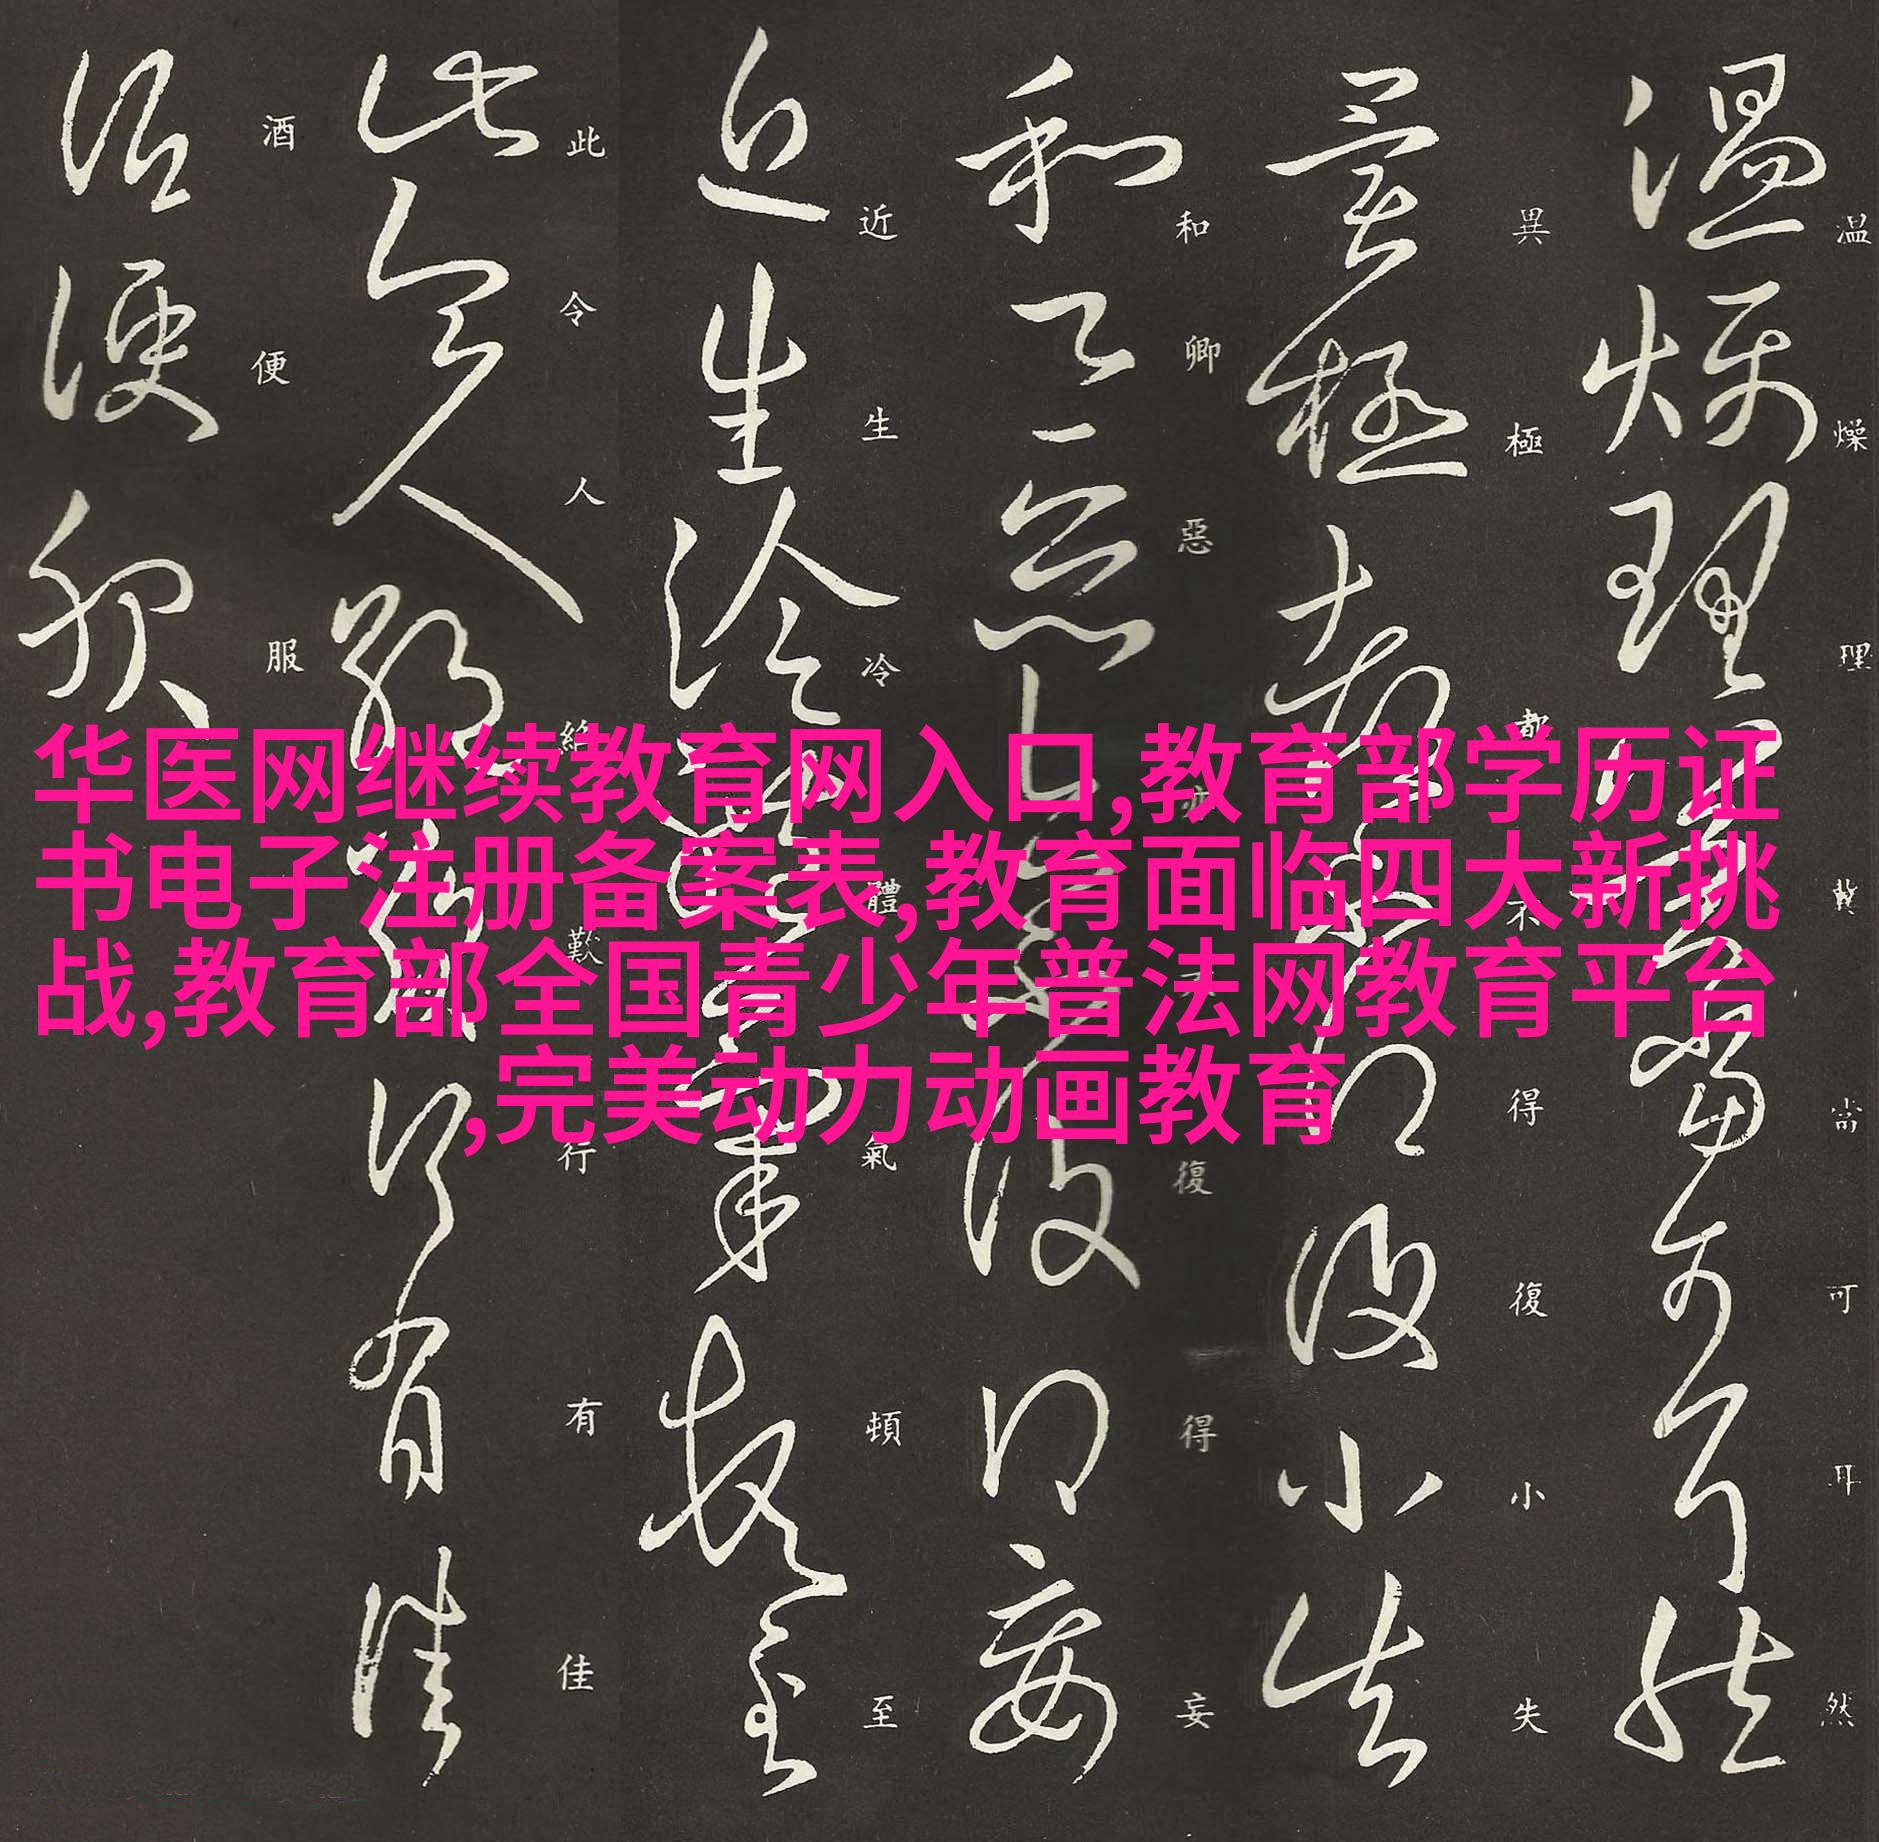 华医网继续教育网入口,教育部学历证
书电子注册备案表,教育面临四大新挑
战,教育部全国青少年普法网教育平台
,完美动力动画教育
温燥理冀當可耳然
異極都不得復小失
和卿惡復得妄
近生冷體氣頓至
此令人絶歎行有佳
酒便服